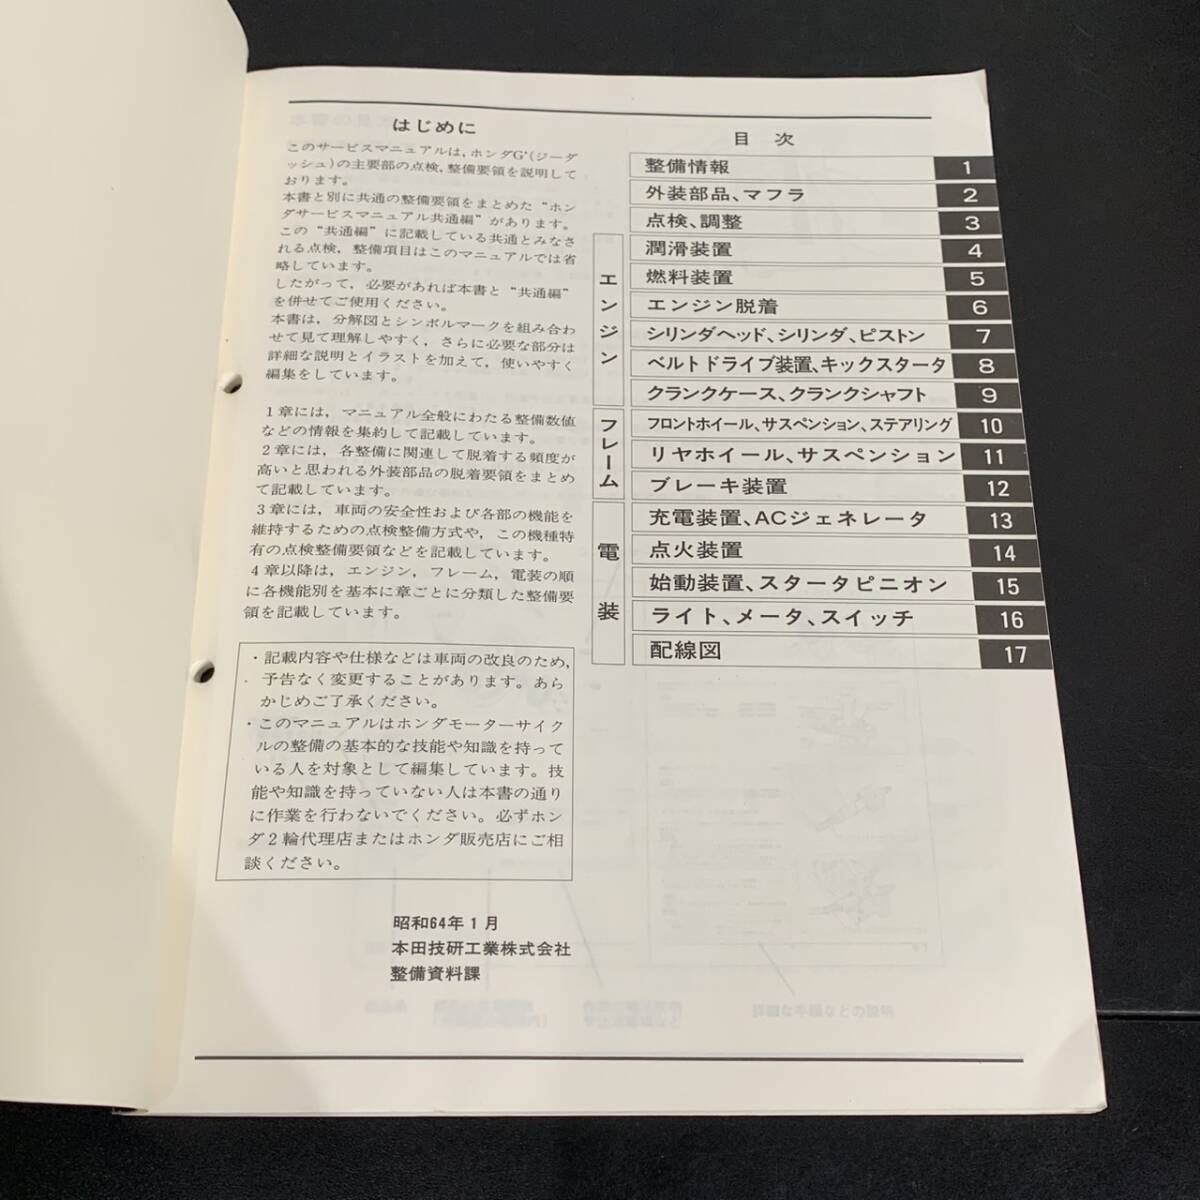 はじめに
このサービスマニュアルは、ホンダG'(ジーダ
ッシュ)の主要部の点検,整備要領を説明して
おります。
本書と別に共通の整備要領をまとめた“ホン
ダサービスマニュアル共通編”があります。
この“共通編”に記載している共通とみなさ
れる点検,整備項目はこのマニュアルでは省
略しています。
したがって,必要があれば本書と“共通編”
を併せてご使用ください。
本書は,分解図とシンボルマークを組み合わ
せて見て理解しやすく,さらに必要な部分は
詳細な説明とイラストを加えて,使いやすく
編集をしています。
1章には,マニュアル全般にわたる整備数値
などの情報を集約して記載しています。
2章には,各整備に関連して脱着する頻度が
高いと思われる外装部品の脱着要領をまとめ
て記載しています。
3章には,車両の安全性および各部の機能を
維持するための点検整備方式や,この機種特
有の点検整備要領などを記載しています。
4章以降は,エンジン,フレーム,電装の順
に各機能別を基本に章ごとに分類した整備要
領を記載しています。
・記載内容や仕様などは車両の改良のため,
予告なく変更することがあります。あら
かじめご了承ください。
・このマニュアルはホンダモーターサイク
ルの整備の基本的な技能や知識を持って
いる人を対象として編集しています。技
能や知識を持っていない人は本書の通り
に作業を行わないでください。必ずホン
ダ2輪代理店またはホンダ販売店にご相
談ください。
昭和64年1月
本田技研工業株式会社
整備資料課
目次
整備情報 1
外装部品、マフラ 2
点検、調整 3
エンジン
潤滑装置 4
燃料装置 5
エンジン脱着 6
シリンダヘッド、シリンダ、ピストン 7
ベルトドライブ装置、キックスタータ 8
クランクケース、クランクシャフト 9
フレーム
フロントホイール、サスペンション、ステアリング 10
リヤホイール、サスペンション 11
ブレーキ装置 12
電装
充電装置、ACジェネレータ 13
点火装置 14
始動装置、スタータピニオン 15
ライト、メータ、スイッチ 16
配線図 17